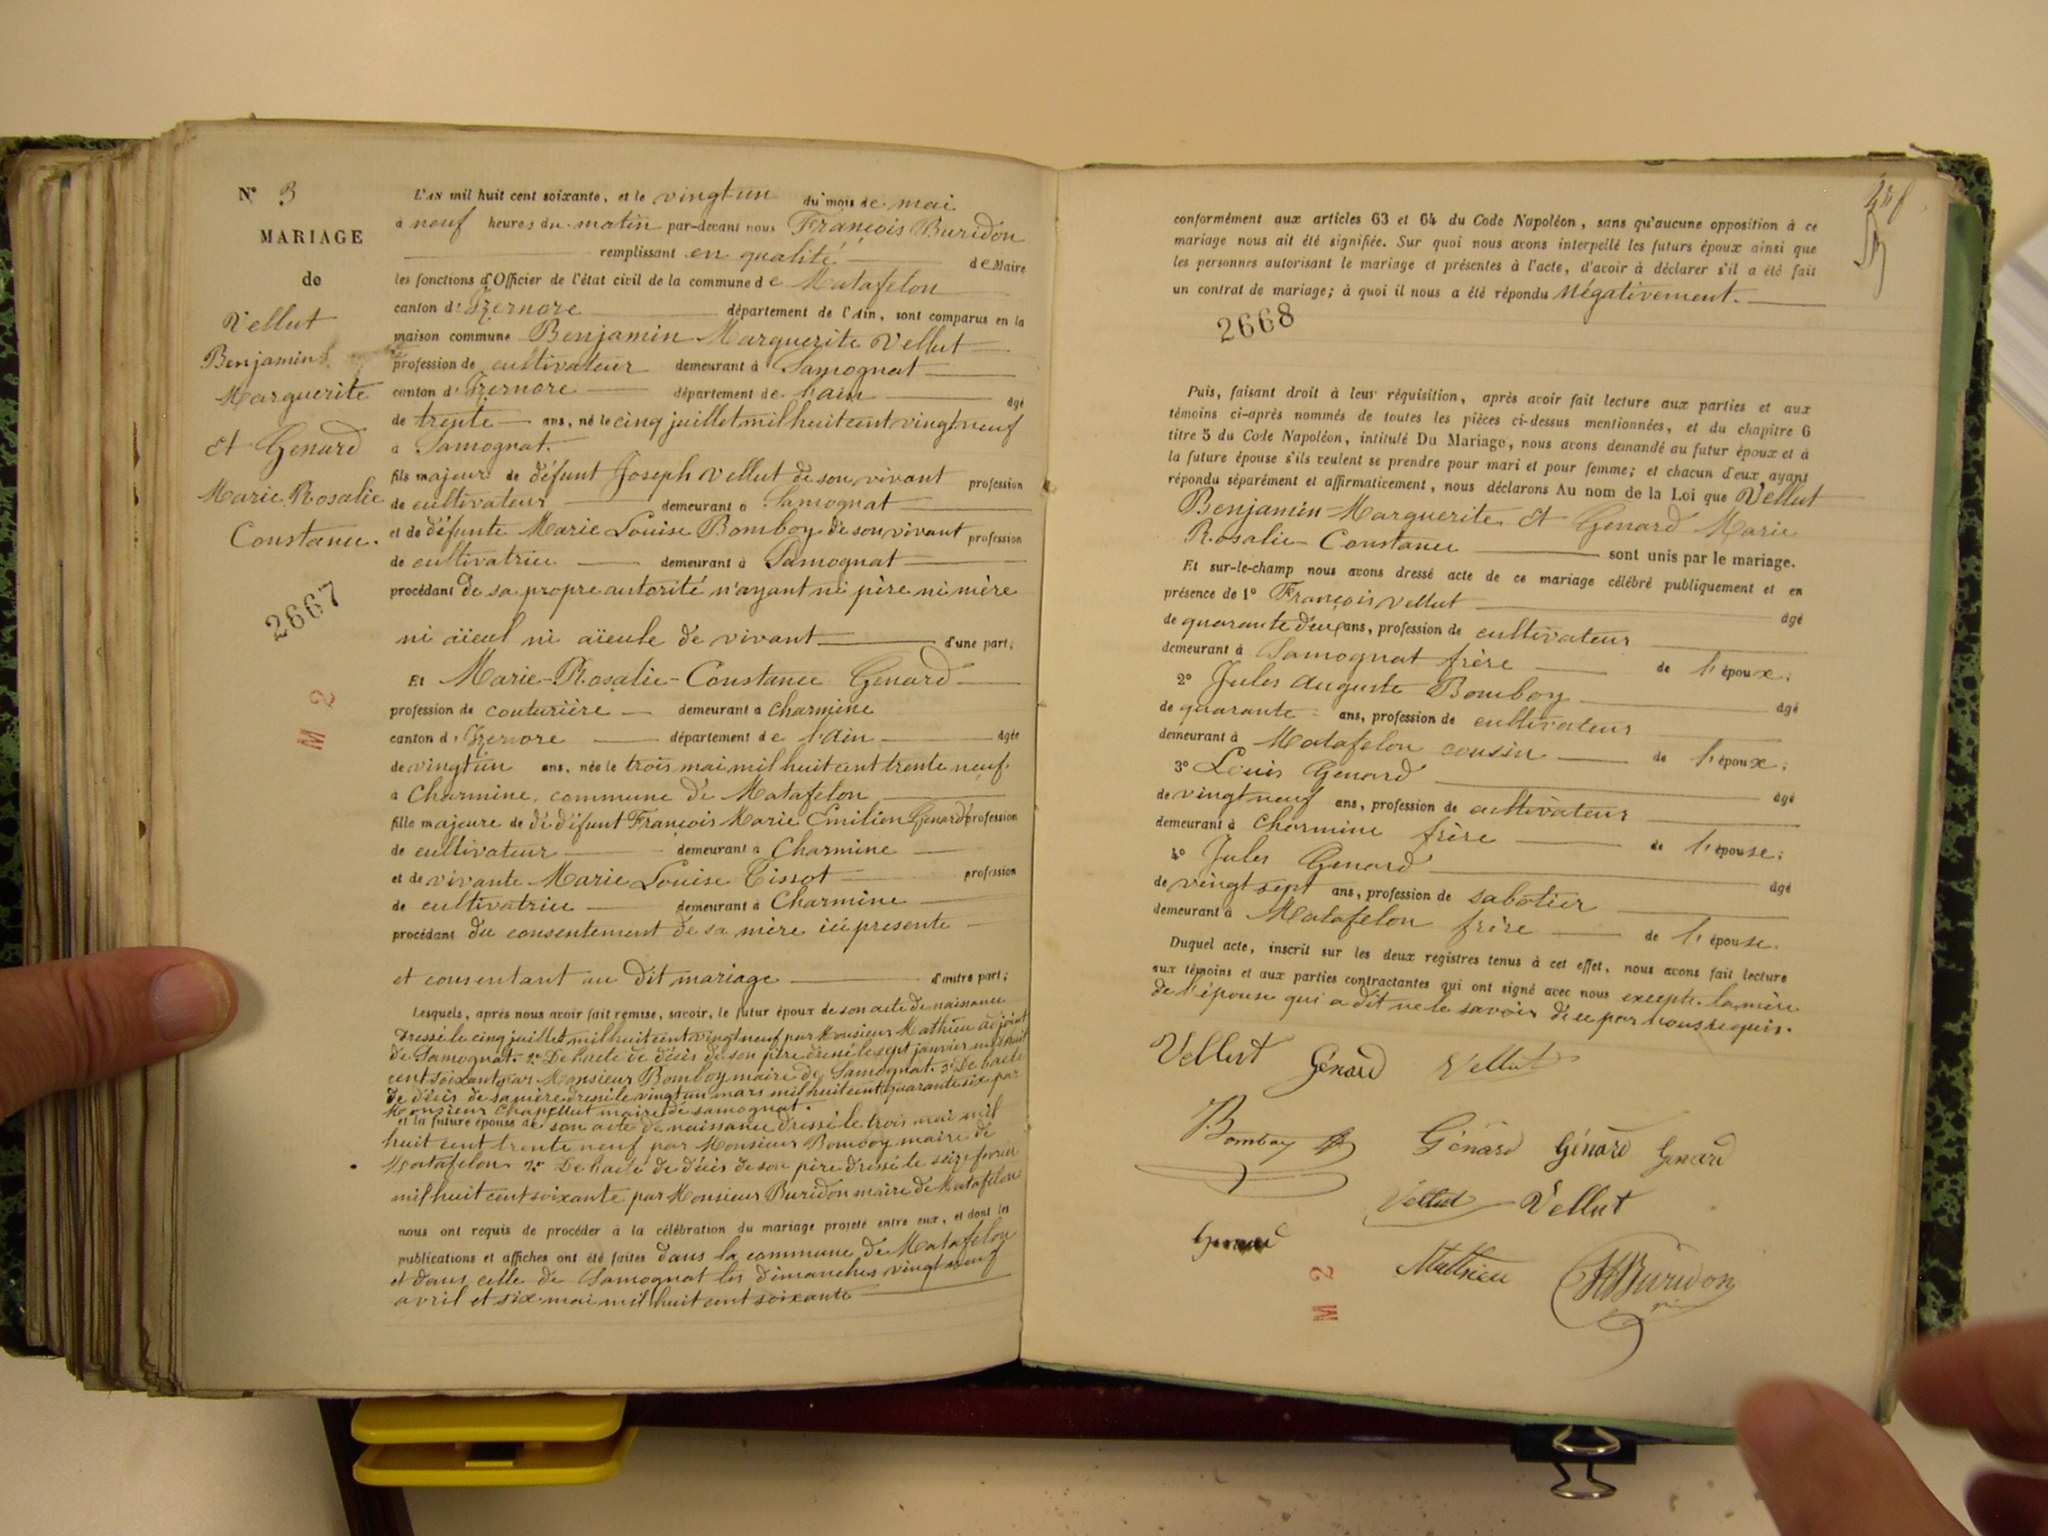 N° 3
MARIAGE
de
Vellut
Benjamin
Marguerite
et Genard
Marie Rosalie
Constance.
2667
M 2
L'AN mil huit cent soixante, et le vingt un du mois de mai
à neuf heures du matin par-devant nous François Buridon
remplissant en qualité de Maire
les fonctions d'Officier de l'état civil de la commune de Matafelon
canton d'Izernore département de l'Ain, sont comparus en la
maison commune Benjamin Marguerite Vellut
profession de cultivateur demeurant à Samognat
canton d'Izernore département de l'ain âgé
de trente ans, né le cinq juillet mil huit cent vingt neuf
à Samognat.
fils majeur de défunt Joseph Vellut de son vivant profession
de cultivateur demeurant à Samognat
et de défunte Marie Louise Bomboy de son vivant profession
de cultivatrice demeurant à Samognat
procédant de sa propre autorité n'ayant ni père ni mère
ni aïeul ni aïeule de vivant d'une part;
Et Marie-Rosalie-Constance Genard
profession de couturière demeurant à Charmine
canton d'Izernore département de l'ain âgée
de vingt un ans, née le trois mai mil huit cent trente neuf
à Charmine, commune de Matafelon
fille majeure de dé défunt François Marie Emilien Genard profession
de cultivateur demeurant à Charmine
et de vivante Marie Louise Tissot profession
de cultivatrice demeurant à Charmine
procédant du consentement de sa mère ici presente
et consentant au dit mariage d'autre part;
Lesquels, après nous avoir fait remise, savoir, le futur époux de son acte de naissance
dressé le cinq juillet mil huit cent vingt neuf par Monsieur Mathieu adjoint
de Samognat. 2° De l'acte de décès de son père dressé le sept janvier mil huit
cent soixante par Monsieur Bomboy maire de Samognat. 3° De l'acte
de décès de sa mère dressé le vingt un mars mil huit cent quarante six par
Monsieur Chapellut maire de samognat.
et la future épouse de son acte de naissance dressé le trois mai mil
huit cent trente neuf par Monsieur Bomboy maire de
Matafelon 2° De l'acte de décès de son père dressé le seize fevrier
mil huit cent soixante par Monsieur Buridon maire de Matafelon
nous ont requis de procéder à la célébration du mariage projeté entre eux, et dont les
publications et affiches ont été faites dans la commune de Matafelon
et dans celle de Samognat les dimanches vingt neuf
avril et six mai mil huit cent soixante
conformément aux articles 63 et 64 du Code Napoléon, sans qu'aucune opposition à ce
mariage nous ait été signifiée. Sur quoi nous avons interpellé les futurs époux ainsi que
les personnes autorisant le mariage et présentes à l'acte, d'avoir à déclarer s'il a été fait
un contrat de mariage; à quoi il nous a été répondu Négativement.
2668
Puis, faisant droit à leur réquisition, après avoir fait lecture aux parties et aux
témoins ci-après nommés de toutes les pièces ci-dessus mentionnées, et du chapitre 6
titre 5 du Code Napoléon, intitulé Du Mariage, nous avons demandé au futur époux et à
la future épouse s'ils veulent se prendre pour mari et pour femme; et chacun d'eux ayant
répondu séparément et affirmativement, nous déclarons Au nom de la Loi que Vellut
Benjamin Marguerite et Genard Marie
Rosalie-Constance sont unis par le mariage.
Et sur-le-champ nous avons dressé acte de ce mariage célébré publiquement et en
présence de 1° François Vellut âgé
de quarante deux ans, profession de cultivateur
demeurant à Samognat frère de l'époux;
2° Jules Auguste Bomboy âgé
de quarante ans, profession de cultivateur
demeurant à Matafelon cousin de l'époux;
3° Louis Genard âgé
de vingt neuf ans, profession de cultivateur
demeurant à Charmine frère de l'épouse;
4° Jules Genard âgé
de vingt sept ans, profession de sabotier
demeurant à Matafelon frère de l'épouse.
Duquel acte, inscrit sur les deux registres tenus à cet effet, nous avons fait lecture
aux témoins et aux parties contractantes qui ont signé avec nous excepté la mère
de l'épouse qui a dit ne le savoir de ce par nous requis.
Vellut Génard Vellut
Bomboy Génard Génard Genard
Vellut Vellut
Genard
Mathieu Buridon
M 2